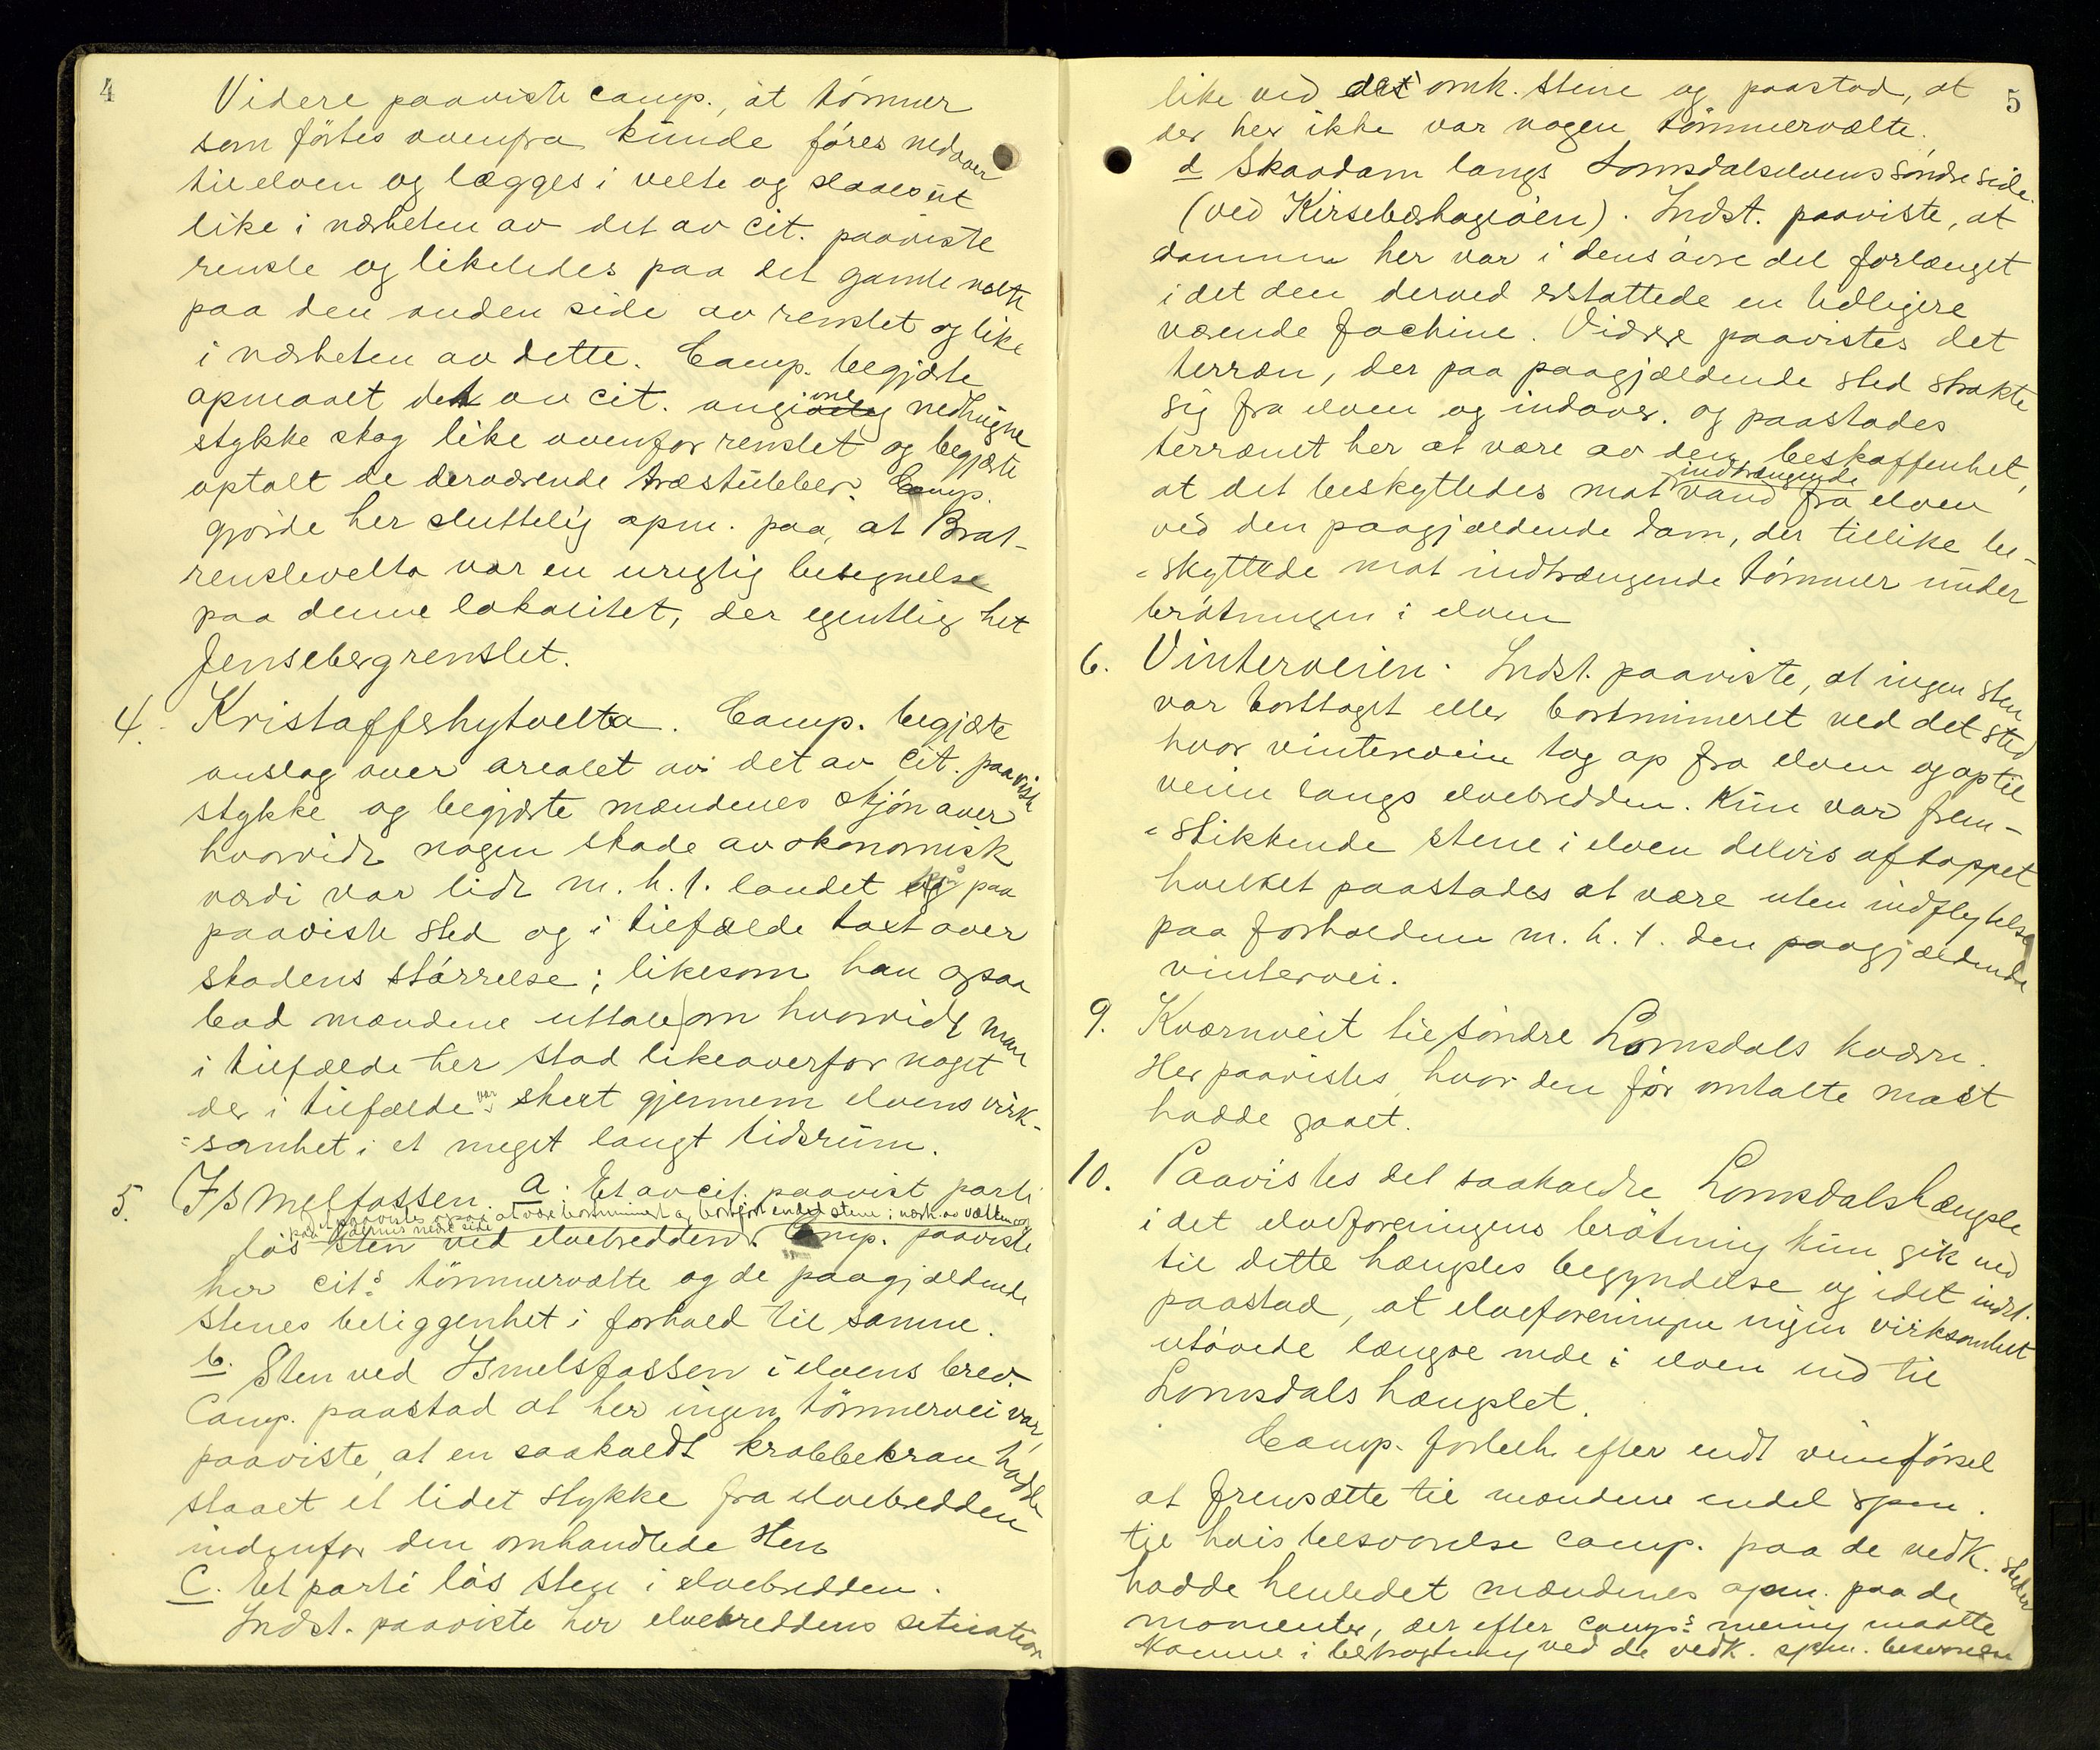 4
Videre paaviste comp., at tömmer
som förtes ovenfra kunde föres nedover
til elven og lægges i velte og slaaes ut
like i nærheten av det av cit. paaviste
rensle og likeledes paa det gamle velte
paa den anden side av renslet og like
i nærheten av dette. Comp. begjærte
opmaalt det av cit. angivne nedhugne
stykke skog like ovenfor renslet og begjærte
optalt de derværende træstubber. Comp.
gjorde her sluttelig opm. paa, at Brat-
renslevelta var en urigtig betegnelse
paa denne lokalitet, der egentlig het
Jensebergrenslet.
4. Kristoffershytvelta. Comp. begjærte
anslag over arealet av det av cit. paaviste
stykke og begjærte mændenes skjön over
hvorvidt nogen skade av økonomisk
værdi var lidt m. h. t. landet paa
paaviste sted og i tilfælde taxt over
skadens störrelse; likesom han ogsaa
bad mændene uttale om hvorvidt man
i tilfælde her stod likeoverfor noget
der i tilfælde var skeet gjennem elvens virk-
=somhet i et meget langt tidsrum.
5. Ismelfossen. a. Et av cit. paavist parti
paa paavistes ogsaa at være bortminert og bortfört endel stene i nærh. av vælten
lös sten ved elvebredden. Comp. paaviste
her cit.s tömmervælte og de paagjældende
stenes beliggenhet i forhold til samme.
b. Sten ved Ismelsfossen i elvens bred.
Comp. paastod at her ingen tömmervei var,
paaviste, at en saakaldt krabbekran hadde
staaet et lidet stykke fra elvebredden
indenfor den omhandlede sten
c. Et parti lös sten i elvebredden.
Indst. paaviste her elvebreddens situation
5
like ved det omh. stene og paastod, at
der her ikke var nogen tömmervælte.
d Skaadam langs Lomsdalselvens söndre side
(ved Kirsebærhagöen). Indst. paaviste, at
dammen her var i dens övre del forlænget
i det den derved erstattede en tidligere
værende fachine. Videre paavistes det
terræn, der paa paagjældende sted strakte
sig fra elven og indover. og paastodes
terrænet her at være av den beskaffenhet,
at det beskyttedes mot indtrængende vand fra elven
ved den paagjældende dam, der tillike be-
=skyttede mot indtrængende tömmer under
brötningen i elven
6. Vinterveien. Indst. paaviste, at ingen sten
var borttaget eller bortmineret ved det sted
hvor vinterveien tog op fra elven og op til
veien langs elvebredden. Kun var frem-
=stikkende stene i elven delvis aftoppet
hvilket paastodes at være uten indflytelse
paa forholdene m. h. t. den paagjældende
vintervei.
9. Kværnveit til söndre Lomsdals kværn.
Her paavistes hvor den för omtalte mast
hadde gaaet.
10. Paavistes det saakaldte Lomsdalshængsle
i det elveforeningens brötning kun gik ned
til dette hængsles begyndelse og idet indst.
paastod, at elveforeningen ingen virksomhet
utövede længre nede i elven end til
Lomsdalshængslet.
Comp. forbeh. efter endt vinneförsel
at fremsætte til mændene endel spm.
til hvis besvarelse comp. paa de vedk. steder
hadde henledet mændenes opm. paa de
momenter, der efter comps mening maatte
komme i betragtning ved de vedk. spm. besvarelse